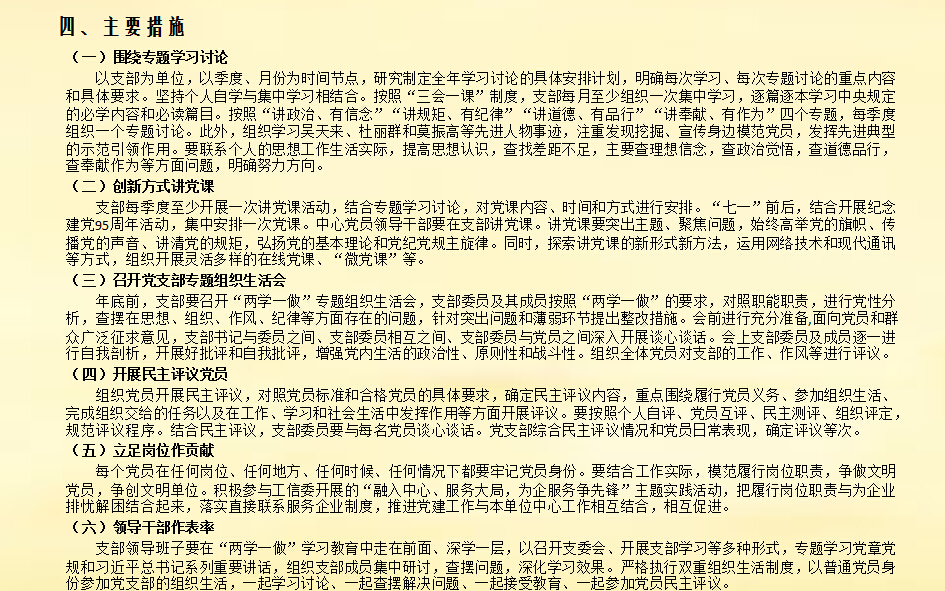 四、主要措施
（一）围绕专题学习讨论
以支部为单位，以季度、月份为时间节点，研究制定全年学习讨论的具体安排计划，明确每次学习、每次专题讨论的重点内容
和具体要求。坚持个人自学与集中学习相结合。按照“三会一课”制度，支部每月至少组织一次集中学习，逐篇逐本学习中央规定
的必学内容和必读篇目。按照“讲政治、有信念”“讲规矩、有纪律”“讲道德、有品行”“讲奉献、有作为”四个专题，每季度
组织一个专题讨论。此外，组织学习吴天来、杜丽群和莫振高等先进人物事迹，注重发现挖掘、宣传身边模范党员，发挥先进典型
的示范引领作用。要联系个人的思想工作生活实际，提高思想认识，查找差距不足，主要查理想信念，查政治觉悟，查道德品行，
查奉献作为等方面问题，明确努力方向。
（二）创新方式讲党课
支部每季度至少开展一次讲党课活动，结合专题学习讨论，对党课内容、时间和方式进行安排。“七一”前后，结合开展纪念
建党95周年活动，集中安排一次党课。中心党员领导干部要在支部讲党课。讲党课要突出主题、聚焦问题，始终高举党的旗帜、传
播党的声音、讲清党的规矩，弘扬党的基本理论和党纪党规主旋律。同时，探索讲党课的新形式新方法，运用网络技术和现代通讯
等方式，组织开展灵活多样的在线党课、“微党课”等。
（三）召开党支部专题组织生活会
年底前，支部要召开“两学一做”专题组织生活会，支部委员及其成员按照“两学一做”的要求，对照职能职责，进行党性分
析，查摆在思想、组织、作风、纪律等方面存在的问题，针对突出问题和薄弱环节提出整改措施。会前进行充分准备,面向党员和群
众广泛征求意见，支部书记与委员之间、支部委员相互之间、支部委员与党员之间深入开展谈心谈话。会上支部委员及成员逐一进
行自我剖析，开展好批评和自我批评，增强党内生活的政治性、原则性和战斗性。组织全体党员对支部的工作、作风等进行评议。
（四）开展民主评议党员
组织党员开展民主评议，对照党员标准和合格党员的具体要求，确定民主评议内容，重点围绕履行党员义务、参加组织生活、
完成组织交给的任务以及在工作、学习和社会生活中发挥作用等方面开展评议。要按照个人自评、党员互评、民主测评、组织评定，
规范评议程序。结合民主评议，支部委员要与每名党员谈心谈话。党支部综合民主评议情况和党员日常表现，确定评议等次。
（五）立足岗位作贡献
每个党员在任何岗位、任何地方、任何时候、任何情况下都要牢记党员身份。要结合工作实际，模范履行岗位职责，争做文明
党员，争创文明单位。积极参与工信委开展的“融入中心、服务大局，为企服务争先锋”主题实践活动，把履行岗位职责与为企业
排忧解困结合起来，落实直接联系服务企业制度，推进党建工作与本单位中心工作相互结合，相互促进。
（六）领导干部作表率
支部领导班子要在“两学一做”学习教育中走在前面、深学一层，以召开支委会、开展支部学习等多种形式，专题学习党章党
规和习近平总书记系列重要讲话，组织支部成员集中研讨，查摆问题，深化学习效果。严格执行双重组织生活制度，以普通党员身
份参加党支部的组织生活，一起学习讨论、一起查摆解决问题、一起接受教育、一起参加党员民主评议。